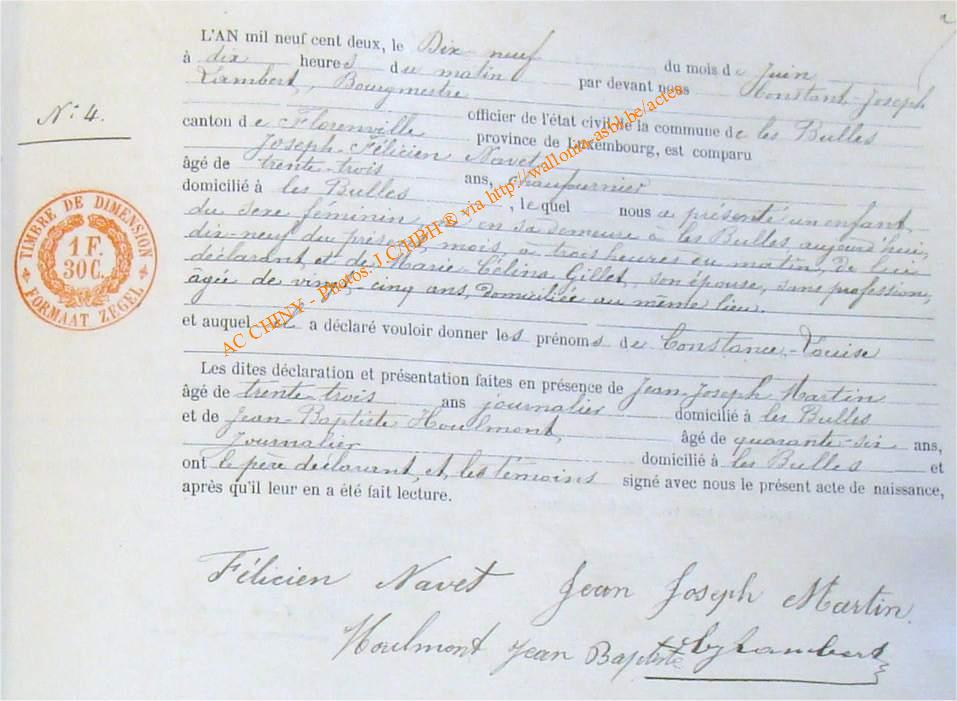 L'AN mil neuf cent deux, le Dix-neuf du mois de Juin
à dix heures du matin par devant nous Constant-Joseph
Lambert, Bourgmestre
officier de l'état civil de la commune de les Bulles
canton de Florenville province de Luxembourg, est comparu
Joseph-Félicien Navet
âgé de trente-trois ans, chaufournier
domicilié à les Bulles, lequel nous a présenté un enfant
du sexe féminin, né en sa demeure à les Bulles, aujourd'hui,
dix-neuf du présent mois, à trois heures du matin, de lui
déclarant, et de Marie-Célina Gillet, son épouse, sans profession,
âgée de vingt-cinq ans, domiciliée au même lieu.
et auquel il a déclaré vouloir donner les prénoms de Constance-Louise
Les dites déclaration et présentation faites en présence de Jean-Joseph Martin
âgé de trente trois ans journalier domicilié à les Bulles
et de Jean-Baptiste Houlmont, âgé de quarante-six ans,
Journalier domicilié à les Bulles et
ont le père déclarant, et, les témoins signé avec nous le présent acte de naissance,
après qu'il leur en a été fait lecture.
N° 4.
TIMBRE DE DIMENSION
1 F.
30 C.
FORMAAT ZEGEL
AC CHINY - Photos. J.C/HBH ® via http://wallonia-asbl.be/actes
Félicien Navet Jean Joseph Martin
Houlmont Jean Baptiste Lambert